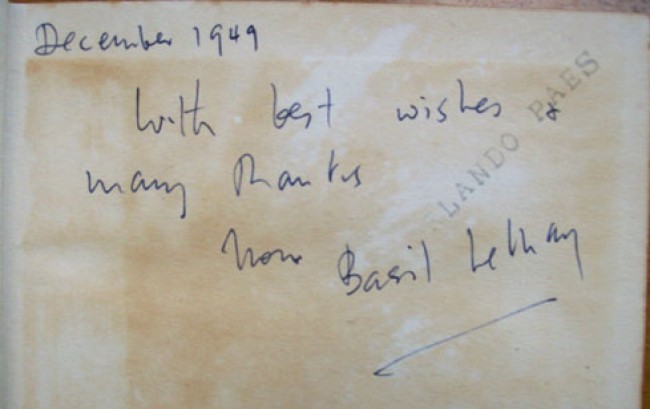 December 1949
With best wishes &
many thanks
from Basil Lethay
LANDO PAES